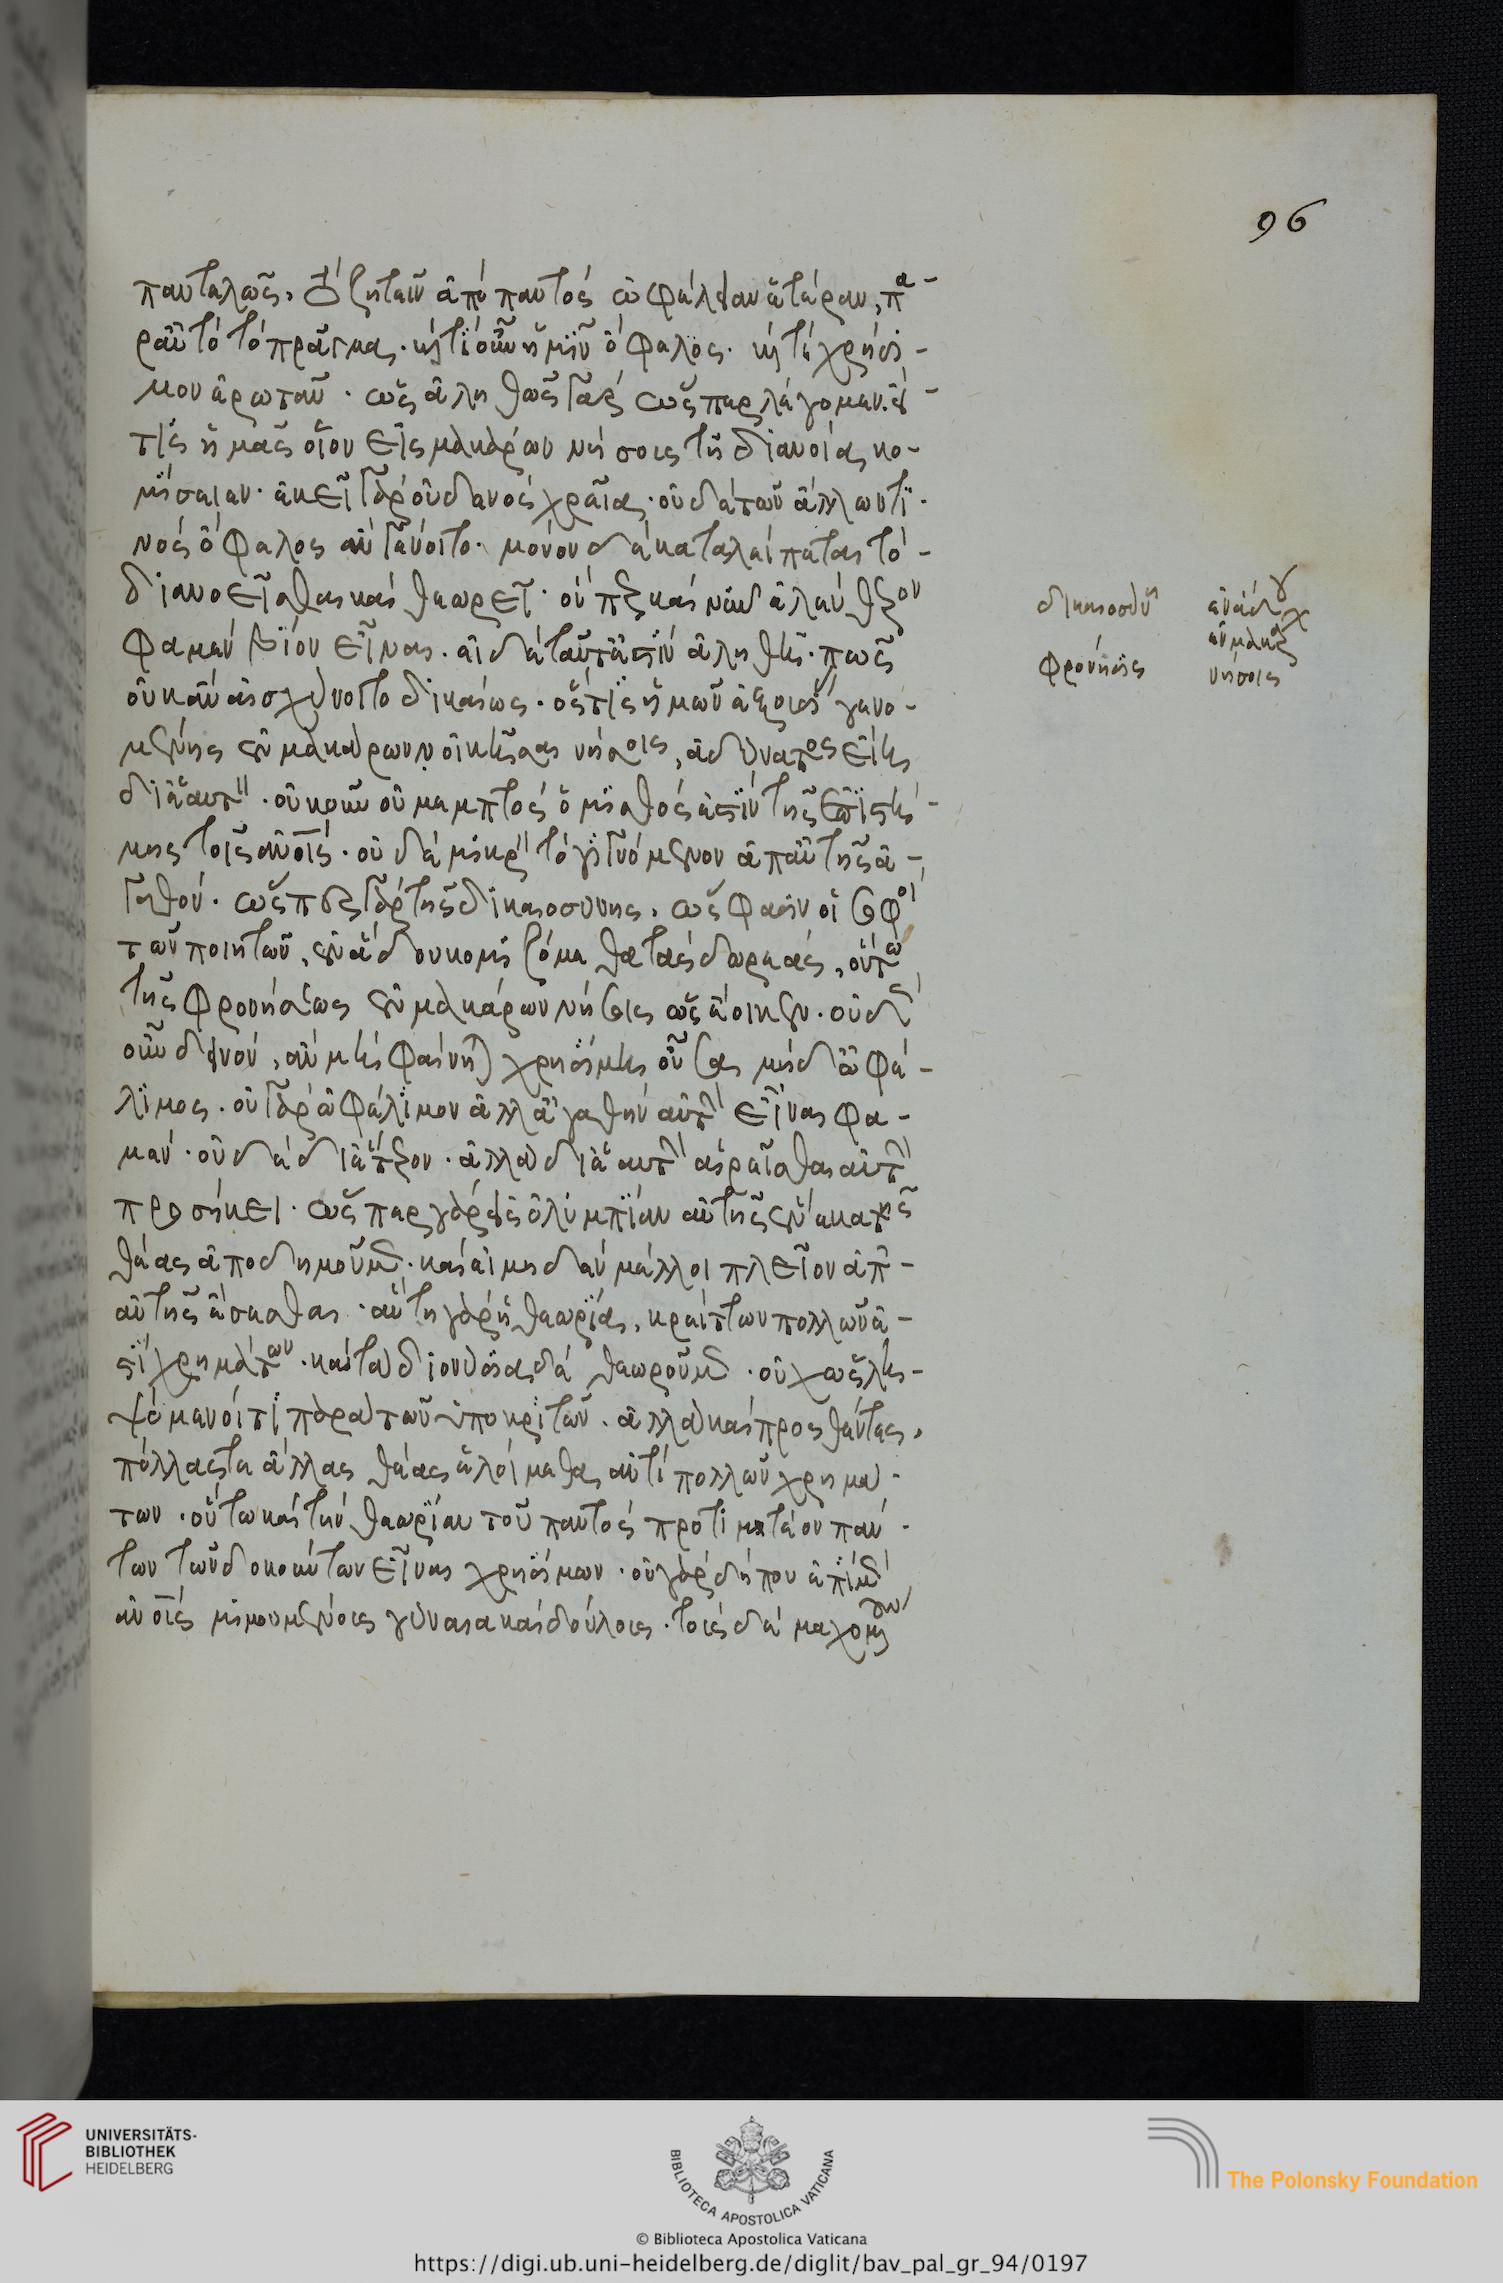 παντελῶς. τὸ ζητεῖν ἀπὸ παντὸς ὠφέλειαν ἑτέραν, πα-
ρ' αὐτὸ τὸ πρᾶγμα. καὶ τί οὖν ἡμῖν ὄφελος. καὶ τί χρήσι-
μον ἐρωτᾶν. ὡς ἀληθῶς γὰρ ὥσπερ λέγομεν. εἴ
τις ἡμᾶς οἷον εἰς μακάρων νήσοις τῇ διανοίᾳ κο-
μίσειεν. ἐκεῖ γὰρ οὐδενὸς χρεία. οὐδὲ τῶν ἄλλων τι-
νὸς ὄφελος ἂν γένοιτο. μόνον δὲ καταλείπεται τὸ
διανοεῖσθαι καὶ θεωρεῖν. ὅνπερ καὶ νῦν ἐλεύθερον
φαμὲν βίον εἶναι. εἰ δὲ ταῦτ' ἐστὶν ἀληθῆ. πῶς
οὐκ ἂν αἰσχύνοιτο δικαίως. ὅστις ἡμῶν ἐξουσίας γενο-
μένης ἐν μακάρων οἰκῆσαι νήσοις, ἀδύνατος εἴη
δι' ἑαυτόν. οὐκοῦν οὐ μεμπτὸς ὁ μισθὸς ἐστὶν τῆς ἐπιστή-
μης τοῖς ἀνθρώποις. οὐδὲ μικρὸν τὸ γιγνόμενον ἀπ' αὐτῆς ἀ-
γαθόν. ὥσπερ γὰρ τῆς δικαιοσύνης, ὥς φασιν οἱ σοφοὶ
τῶν ποιητῶν, ἐν ἅδου κομιζόμεθα τὰς δωρεάς, οὕτω
τῆς φρονήσεως ἐν μακάρων νήσοις ὡς ἔοικεν. οὐδὲν
οὖν δεινόν, ἂν μὴ φαίνηται χρησίμη οὖσα μηδ' ὠφέ-
λιμος. οὐ γὰρ ὠφέλιμον ἀλλ' ἀγαθὴν αὐτὴν εἶναι φα-
μέν. οὐδὲ δι' ἕτερον. ἀλλὰ δι' ἑαυτὴν αἱρεῖσθαι αὐτὴν
προσήκει. ὥσπερ γὰρ εἰς ὀλυμπίαν αὐτῆς ἕνεκα τῆς
θέας ἀποδημοῦμεν. καὶ εἰ μηδὲν μέλλοι πλεῖον ἀπ'
αὐτῆς ἔσεσθαι. αὐτὴ γὰρ ἡ θεωρία, κρείττων πολλῶν ἐ-
στὶ χρημάτων. καὶ τὰ διονύσια δὲ θεωροῦμεν. οὐχ ὡς λη-
ψόμενοί τι παρὰ τῶν ὑποκριτῶν. ἀλλὰ καὶ προσθέντες,
πολλάς τε ἄλλας θέας ἑλοίμεθα ἀντὶ πολλῶν χρημά-
των. οὕτω καὶ τὴν θεωρίαν τοῦ παντὸς προτιμητέον πάν-
των τῶν δοκούντων εἶναι χρησίμων. οὐ γὰρ δήπου ἐπὶ μὲν
ἀνθρώποις μιμουμένοις γύναια καὶ δούλοις. τοῖς δὲ μαχομένοις

96

δικαιοσύνη ἐν ἅδου
φρόνησις ἐν μακάρων νήσοις

UNIVERSITÄTS-
BIBLIOTHEK
HEIDELBERG
BIBLIOTECA APOSTOLICA VATICANA
© Biblioteca Apostolica Vaticana
The Polonsky Foundation
https://digi.ub.uni-heidelberg.de/diglit/bav_pal_gr_94/0197